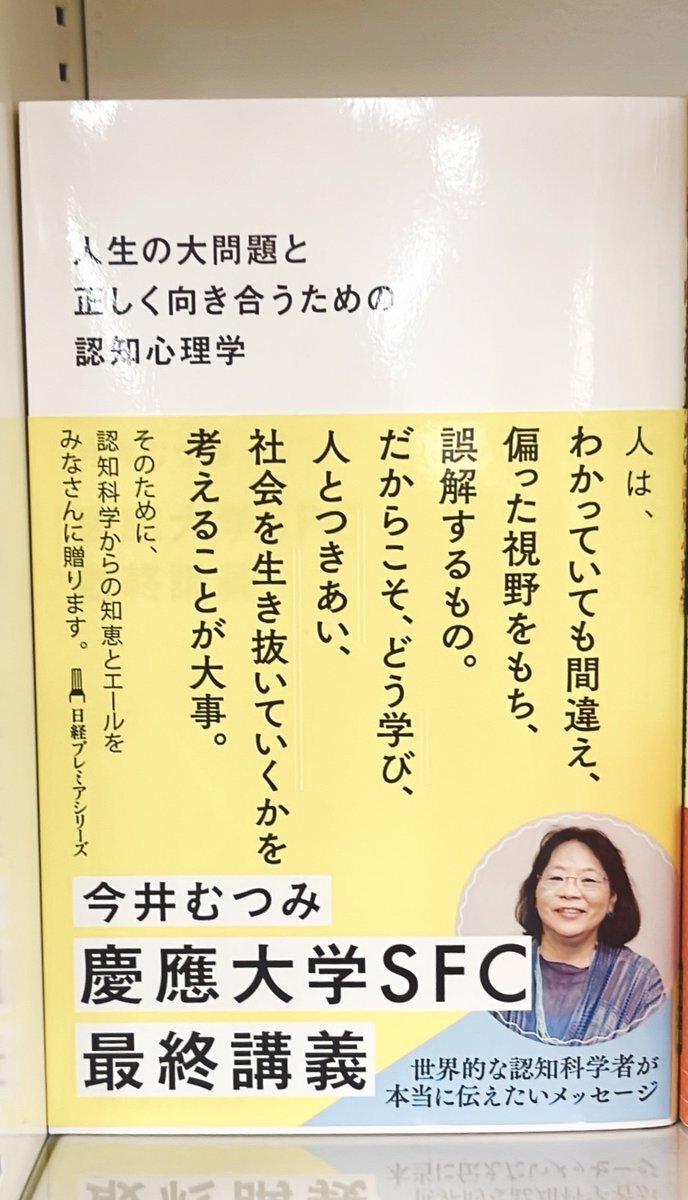 人生の大問題と
正しく向き合うための
認知心理学
人は、
わかっていても間違え、
偏った視野をもち、
誤解するもの。
だからこそ、どう学び、
人とつきあい、
社会を生き抜いていくかを
考えることが大事。
そのために、
認知科学からの知恵とエールを
みなさんに贈ります。
日経プレミアシリーズ
今井むつみ
慶應大学SFC
最終講義
世界的な認知科学者が
本当に伝えたいメッセージ